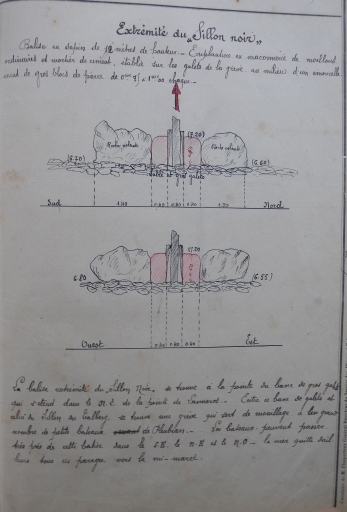 Extrémité du "Sillon noir"
Balise en sapin de 12 mètres de hauteur. - Emplanture en maçonnerie de moellons
ordinaires et mortier de ciment, établie sur les galets de la grève au milieu d'un
de gros blocs de pierre de
chaque. -
Roche
(7.20)
Roche
(6.20)
(6.60)
Sable et gros galets
Sud
1.20
0.80
0.80
0.80
1.20
Nord
7.20
6.80
(6.55)
Ouest
0.80
0.80
0.80
Est
La balise extrémité du Sillon Noir, se trouve à la pointe du banc de gros galets
qui s'étend dans le N.E. de la pointe de - Entre ce banc de galets et
celui du Sillon du Talberg, se trouve une grève qui sert de mouillage à un grand
nombre de petits bateaux de Pleubian. - Les bateaux peuvent passer
très près de cette balise dans le S.E. le N.E et le N.O - la mer quitte
dans ces parages vers la mi-marée.